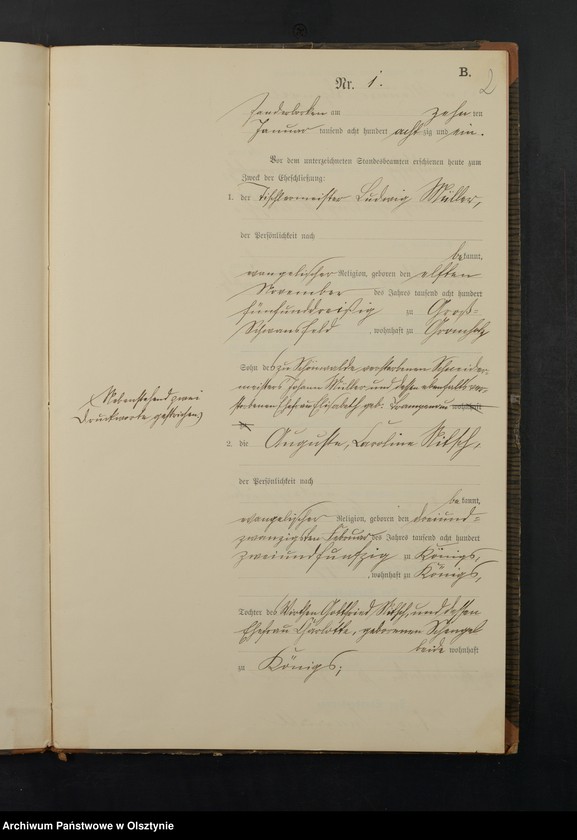 B.
2
Nr. 1.
am zehn ten
Januar tausend acht hundert acht zig und ein.
Vor dem unterzeichneten Standesbeamten erschienen heute zum
Zweck der Eheschließung:
1. der Tischlermeister Ludwig Müller,
der Persönlichkeit nach
be kannt,
evangelischer Religion, geboren den elften
November des Jahres tausend acht hundert
fünfunddreißig zu Groß=
Schwansfeld , wohnhaft zu
Sohn des zu Schönwalde verstorbenen Schneider-
meisters Johann Müller und dessen ebenfalls ver-
storbenen Ehefrau Elisabeth geb. wohnhaft
zu
Nebenstehend zwei
Druckworte gestrichen
2. die Auguste, Caroline Nitsch,
der Persönlichkeit nach
be kannt,
evangelischer Religion, geboren den dreiund=
zwanzigsten Februar des Jahres tausend acht hundert
zweiundfünfzig zu Königs,
, wohnhaft zu Königs,
Tochter des Wirthen Gottfried Nitsch und dessen
Ehefrau Charlotte, geborenen Schengel
beide wohnhaft
zu Königs;
Archiwum Państwowe w Olsztynie